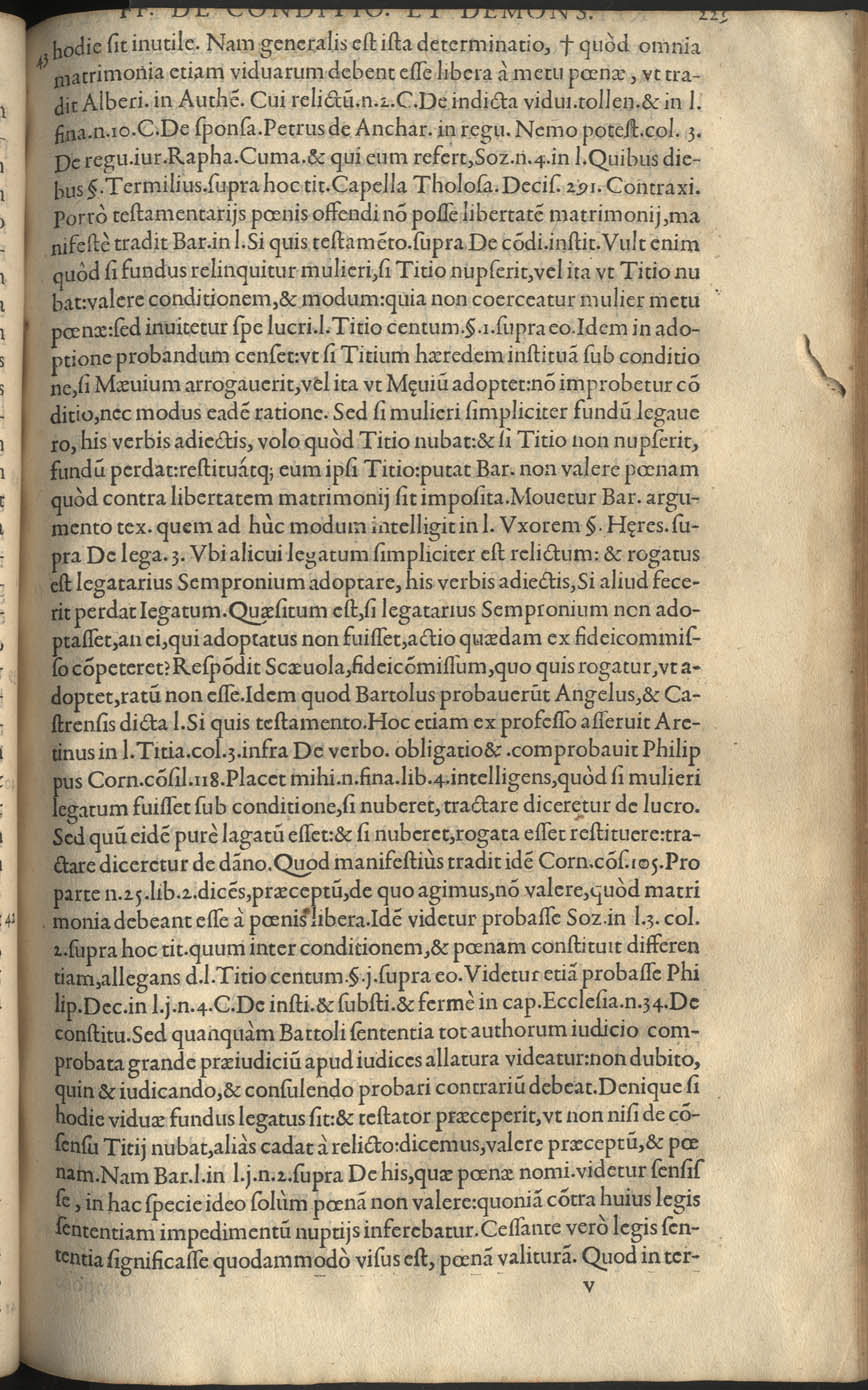 FF. DE CONDITIO. ET DEMONS. 225
43 hodie ſit inutile. Nam generalis eſt iſta determinatio, † quòd omnia
matrimonia etiam viduarum debent eſſe libera à metu pœnæ, vt tra-
dit Alberi. in Authẽ. Cui relictũ.n.2.C.De indicta vidui.tollen.& in l.
fina.n.10.C.De ſponſa.Petrus de Anchar. in regu. Nemo poteſt.col. 3.
De regu.iur.Rapha.Cuma.& qui eum refert,Soz.n.4.in l.Quibus die-
bus §.Termilius.ſupra hoc tit.Capella Tholoſa.Deciſ. 291. Contraxi.
Porrò teſtamentarijs pœnis offendi nõ poſſe libertatẽ matrimonij,ma
nifeſtè tradit Bar.in l.Si quis teſtamẽto.ſupra De cõdi.inſtit.Vult enim
quòd ſi fundus relinquitur mulieri,ſi Titio nupſerit,vel ita vt Titio nu
bat:valere conditionem,& modum:quia non coerceatur mulier metu
pœnæ:ſed inuitetur ſpe lucri.l.Titio centum.§.1.ſupra eo.Idem in ado-
ptione probandum cenſet:vt ſi Titium hæredem inſtituã ſub conditio
ne,ſi Mæuium arrogauerit,vel ita vt Męuiũ adoptet:nõ improbetur cõ
ditio,nec modus eadẽ ratione. Sed ſi mulieri ſimpliciter fundũ legaue
ro, his verbis adiectis, volo quòd Titio nubat:& ſi Titio non nupſerit,
fundũ perdat:reſtituátq; eum ipſi Titio:putat Bar. non valere pœnam
quòd contra libertatem matrimonij ſit impoſita.Mouetur Bar. argu-
mento tex. quem ad hùc modum intelligit in l. Vxorem §. Hęres. ſu-
pra De lega. 3. Vbi alicui legatum ſimpliciter eſt relictum: & rogatus
eſt legatarius Sempronium adoptare, his verbis adiectis,Si aliud fece-
rit perdat legatum.Quæſitum eſt,ſi legatarius Sempronium non ado-
ptaſſet,an ei,qui adoptatus non fuiſſet,actio quædam ex fideicommiſ-
ſo cõpeteret?Reſpõdit Scæuola,fideicõmiſſum,quo quis rogatur,vt a-
doptet,ratũ non eſſe.Idem quod Bartolus probauerũt Angelus,& Ca-
ſtrenſis dicta l.Si quis teſtamento.Hoc etiam ex profeſſo aſſeruit Are-
tinus in l.Titia.col.3.infra De verbo. obligatio& .comprobauit Philip
pus Corn.cõſil.118.Placet mihi.n.fina.lib.4.intelligens,quòd ſi mulieri
legatum fuiſſet ſub conditione,ſi nuberet, tractare diceretur de lucro.
Sed quũ eidẽ purè lagatũ eſſet:& ſi nuberet,rogata eſſet reſtituere:tra-
ctare diceretur de dãno.Quod manifeſtiùs tradit idẽ Corn.cõſ.105.Pro
parte n.25.lib.2.dicẽs,præceptũ,de quo agimus,nõ valere,quòd matri
monia debeant eſſe à pœnis libera.Idẽ videtur probaſſe Soz.in l.3. col.
2.ſupra hoc tit.quum inter conditionem,& pœnam conſtituit differen
tiam,allegans d.l.Titio centum.§.j.ſupra eo.Videtur etiã probaſſe Phi
lip.Dec.in l.j.n.4.C.De inſti.& ſubſti.& fermè in cap.Eccleſia.n.34.De
conſtitu.Sed quanquàm Bartoli ſententia tot authorum iudicio com-
probata grande præiudiciũ apud iudices allatura videatur:non dubito,
quin & iudicando,& conſulendo probari contrariũ debeat.Denique ſi
hodie viduæ fundus legatus ſit:& teſtator præceperit,vt non niſi de cõ-
ſenſu Titij nubat,aliàs cadat à relicto:dicemus,valere præceptũ,& pœ
nam.Nam Bar.l.in l.j.n.2.ſupra De his,quæ pœnæ nomi.videtur ſenſiſ
ſe, in hac ſpecie ideo ſolùm pœnã non valere:quoniã cõtra huius legis
ſententiam impedimentũ nuptijs inferebatur.Ceſſante verò legis ſen-
tentia ſignificaſſe quodammodò viſus eſt, pœnã valiturã. Quod in ter-
v